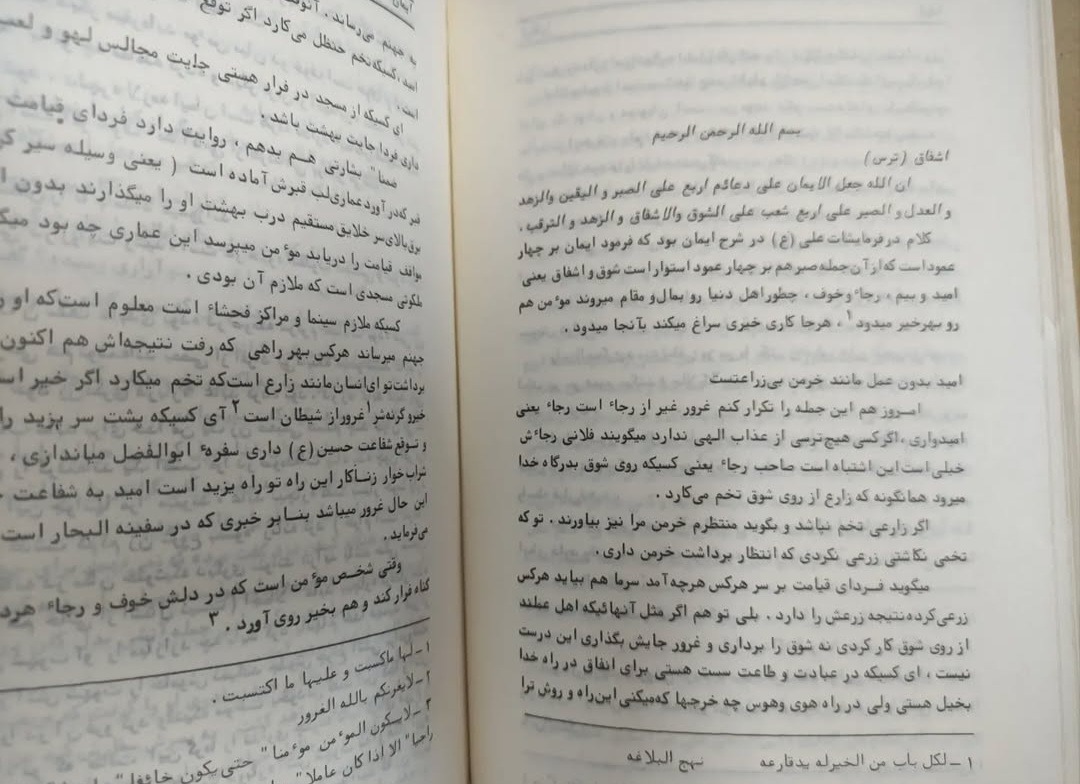 بسم الله الرحمن الرحیم
اشفاق (ترس)
ان الله جعل الایمان علی دعائم اربع علی الصبر و الیقین والزهد
و العدل و الصبر علی اربع شعب علی الشوق والاشفاق و الزهد و الترقب .
کلام در فرمایشات علی (ع) در شرح ایمان بود که فرمود ایمان بر چهار
عمود است که از آن جمله صبر هم بر چهار عمود استوار است شوق و اشفاق یعنی
امید و بیم ، رجاء وخوف ، چطور اهل دنیا رو بمال و مقام میروند موءمن هم
رو بهر خیر میدود ۱ ، هرجا کاری خیری سراغ میکند بآنجا میدود .
امید بدون عمل مانند خرمن بی‌زراعتست
امروز هم این جمله را تکرار کنم غرور غیر از رجاء است رجاء یعنی
امیدواری ، اگر کسی هیچ ترسی از عذاب الهی ندارد میگویند فلانی رجاءش
خیلی است این اشتباه است صاحب رجاء یعنی کسیکه روی شوق بدرگاه خدا
میرود همانگونه که زارع از روی شوق تخم می‌کارد .
اگر زارعی تخم نپاشد و بگوید منتظرم خرمن مرا نیز بیاورند . تو که
تخمی نکاشتی زرعی نکردی که انتظار برداشت خرمن داری .
میگوید فردای قیامت بر سر هرکس هرچه آمد سرما هم بیاید هرکس
زرعی کرده نتیجه زرعش را دارد . بلی تو هم اگر مثل آنهائیکه اهل عملند
از روی شوق کار کردی نه شوق را برداری و غرور جایش بگذاری این درست
نیست ، ای کسیکه در عبادت و طاعت سست هستی برای انفاق در راه خدا
بخیل هستی ولی در راه هوی وهوس چه خرجها که میکنی این راه و روش ترا
۱ ـ لکل باب من الخیر له ید قارعه نهج البلاغه
به جهنم می‌رساند .
امید ، کسیکه تخم حنظل می‌کارد اگر توقع
است .
ای کسیکه از مسجد در فرار هستی جایت مجالس لهو و لعب
داری فردا جایت بهشت باشد .
ضمنا" بشارتی هم بدهم ، روایت دارد فردای قیامت
قبر که در آورد عماری لب قبرش آماده است ( یعنی وسیله سیر
برق بالای سر خلایق مستقیم درب بهشت او را میگذارند بدون
مواقف قیامت را دریابد موءمن میپرسد این عماری چه بود
ملکوتی مسجدی است که ملازم آن بودی .
کسیکه ملازم سینما و مراکز فحشاء است معلوم است که او
جهنم میرساند هرکس بهر راهی که رفت نتیجه‌اش هم اکنون
برداشت تو ای انسان مانند زارع است که تخم میکارد اگر خیر
خیر و گرنه شر ۱ غرور از شیطان است ۲ آی کسیکه پشت سر یزید
و توقع شفاعت حسین (ع) داری سفرهٔ ابوالفضل میاندازی ،
شراب خوار زناکار این راه تو راه یزید است امید به شفاعت
این حال غرور میباشد بنابر خبری که در سفینه البحار است
می‌فرماید .
وقتی شخص موءمن است که در دلش خوف و رجاء
گناه فرار کند و هم بخیر روی آورد . ۳
۱ ـ لها ماکسبت و علیها ما اکتسبت .
۲ ـ لایغرنکم بالله الغرور
۳ ـ لایکون الموءمن موءمنا" حتی یکون خائفا"
راجیا" الا اذا کان عاملا"